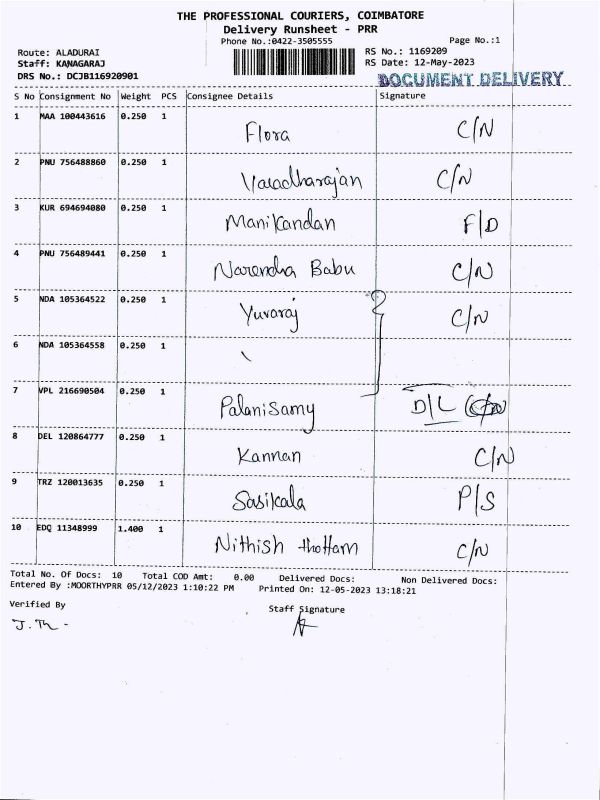 THE PROFESSIONAL COURIERS, COIMBATORE
Delivery Runsheet - PRR
Phone No.:0422-3505555 Page No.:1
Route: ALADURAI RS No.: 1169209
Staff: KANAGARAJ RS Date: 12-May-2023
DRS No.: DCJB116920901 DOCUMENT DELIVERY
S No Consignment No Weight PCS Consignee Details Signature
1 MAA 100443616 0.250 1 Flora C/N
2 PNU 756488860 0.250 1 Varadharajan C/N
3 KUR 694694080 0.250 1 Manikandan F/D
4 PNU 756489441 0.250 1 Narendra Babu C/N
5 NDA 105364522 0.250 1 Yuvaraj C/N
6 NDA 105364558 0.250 1
7 VPL 216690504 0.250 1 Palanisamy D/L
8 DEL 120864777 0.250 1 Kannan C/N
9 TRZ 120013635 0.250 1 Sasikala P/S
10 EDQ 11348999 1.400 1 Nithish thottam C/N
Total No. Of Docs: 10 Total COD Amt: 0.00 Delivered Docs: Non Delivered Docs:
Entered By :MOORTHYPRR 05/12/2023 1:10:22 PM Printed On: 12-05-2023 13:18:21
Verified By Staff Signature